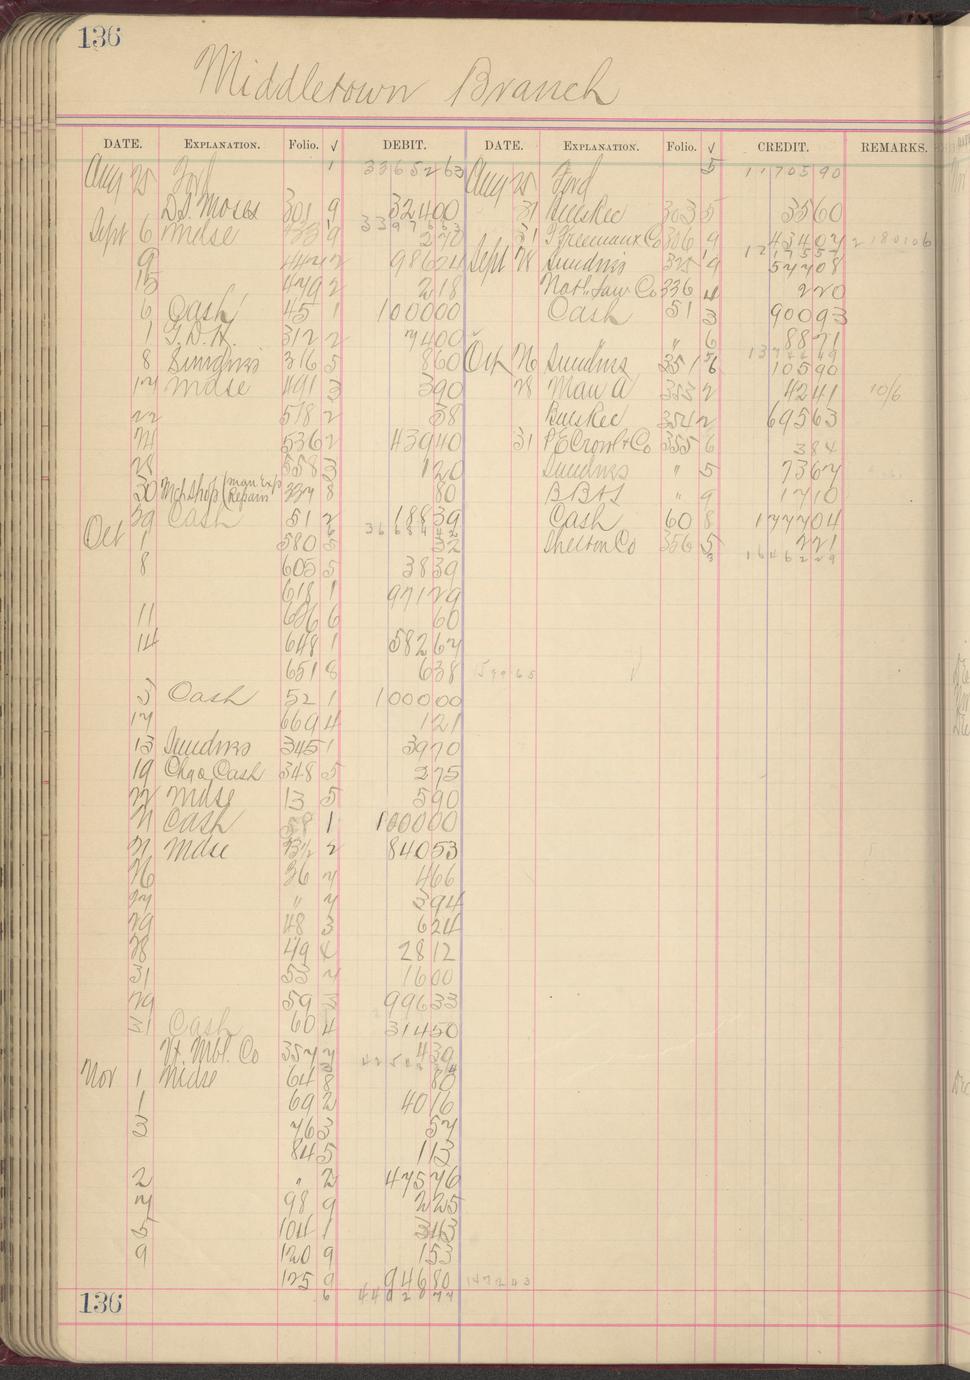 136
Middletown Branch
DATE. EXPLANATION. Folio. √ DEBIT. DATE. EXPLANATION. Folio. √ CREDIT. REMARKS.
Aug 25 Ford 1 3365263 Aug 25 Ford 5 1170590
D.S. Moses 301 9 32400 31 Bus Rec 303 5 3560
Sept 6 Mdse 9 270 31 Co 306 9 43407 2180106
9 2 98624 Sept 28 Sundries 325 9 57708
15 479 2 218 Nat. Law Co 336 4 220
6 Cash 45 1 100000 Cash 51 3 90093
1 G.D.H. 312 2 7400 " 6 8871
8 Sundries 316 5 860 Oct 26 Sundries 351 6 10590
17 Mdse 491 3 390 28 Man a 353 2 4241 10/6
22 518 2 58 Bus Rec 354 2 69563
24 536 2 43940 31 P E Crowl & Co 355 6 384
28 558 3 120 Sundries " 5 7367
30 Mch Shop (Man Exp Repairs 337 8 80 B B & L " 9 1710
29 Cash 51 2 18839 Cash 60 8 177704
Oct 1 580 5 32 Shelton Co 356 5 221
8 605 5 3839 1646229
618 1 97129
11 636 6 60
14 648 1 58267
651 8 638
3 Cash 52 1 100000
17 669 4 121
13 Sundries 345 1 3970
19 Chgo Cash 348 5 275
22 Mdse 13 5 590
21 Cash 58 1 100000
21 Mdse 33½ 2 84053
26 36 7 466
27 " 7 394
29 48 3 624
28 49 4 2812
31 53 7 1600
29 59 3 99633
31 Cash 60 4 31450
Vt. Mbl. Co 357 7 439
Nov 1 Mdse 64 8 80
1 69 2 4016
3 76 3 57
84 5 113
2 " 2 47576
7 98 9 225
5 104 1 343
9 120 9 153
125 9 94680 147243
136 6 4402077